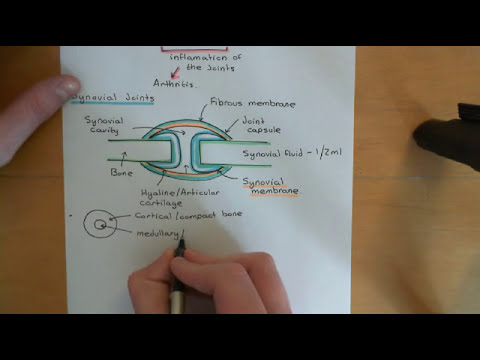 inflamation of
the Joints
Arthritis
Synovial Joints
Fibrous membrane
Synovial
cavity
Joint
capsule
Synovial fluid - 1/2ml
Bone
Hyaline/Articular
cartilage
Synovial
membrane
Cortical/compact bone
medullary/